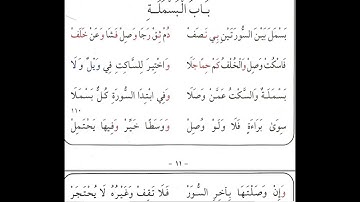 بَابُ الْبَسْمَلَةِ
بَسْمَلَ بَيْنَ السُّورَتَيْنِ بِي نَصَفْ دُمْ ثِقْ رَجَا وَصِلْ فَشَا وَعَنْ خَلَفْ
فَاسْكُتْ وَصِلْ وَالْخُلْفُ كَمْ حِمًا جَلَا وَاخْتِيرَ لِلسَّاكِتِ فِي وَيْلٌ وَلَا
بَسْمَلَةٌ وَالسَّكْتُ عَمَّنْ وَصَلَا وَفِي ابْتِدَا السُّورَةِ كُلٌّ بَسْمَلَا
سِوَىٰ بَرَاءَةٍ فَلَا وَلَوْ وُصِلْ وَوَسَطًا خَيِّرْ وَفِيهَا يَحْتَمِلْ
١١٠
- ١١ -
وَإِنْ وَصَلْتَهَا بِآخِرِ السُّوَرْ فَلَا تَقِفْ وَغَيْرُهُ لَا يُحْتَجَرْ